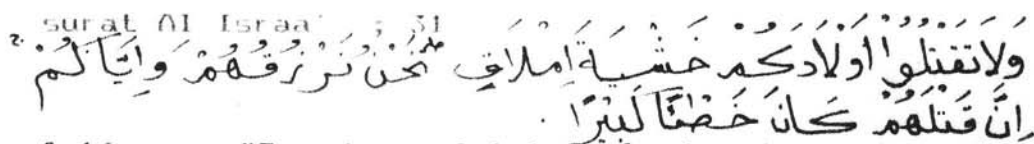 surat Al Israa' : 31
وَلَا تَقْتُلُوا أَوْلَادَكُمْ خَشْيَةَ إِمْلَاقٍ نَحْنُ نَرْزُقُهُمْ وَإِيَّاكُمْ
إِنَّ قَتْلَهُمْ كَانَ خِطْئًا كَبِيرًا .